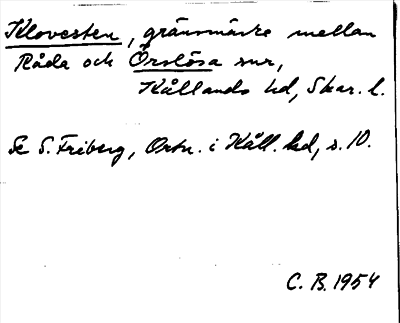 Klovesten, gränsmärke mellan
Råda och Örslösa snr,
Kållands hd, Skar. l.
Se S. Friberg, Ortn. i Kåll. hd, s. 10.
C. B. 1954